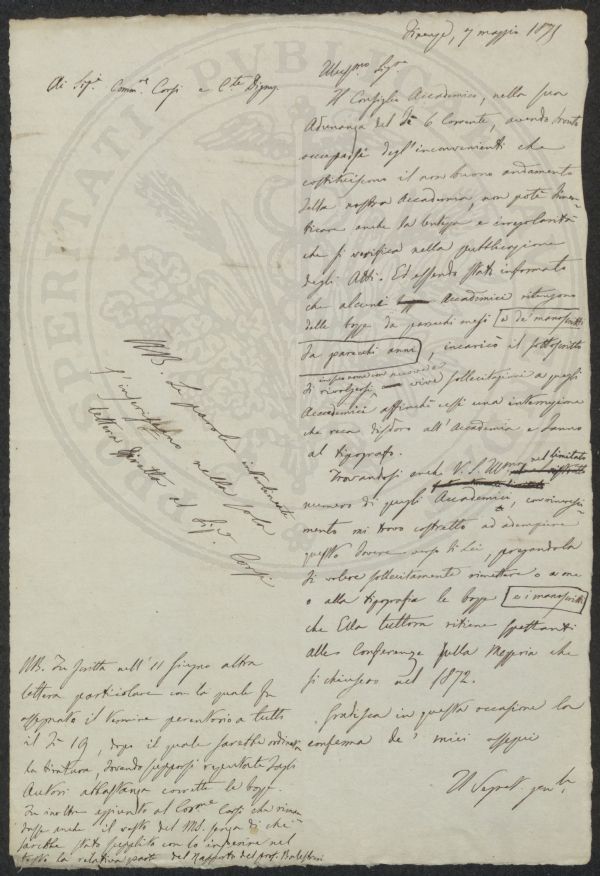 Firenze, 7 maggio 1875
Ai Sigri Comm.e Corsi e C.te Digny
Illustmo Sigre
Il Consiglio Accademico, nella sua
Adunanza del dì 6 Corrente, avendo dovuto
occuparsi degl'inconvenienti che
costituiscono il non buono andamento
della nostra Accademia, non potè dimen-
ticare anche la lentezza e irregolarità
che si verifica nella pubblicazione
degli Atti. Ed essendo stato informato
che alcuni Accademici ritengono
delle bozze da parecchi mesi e de' manoscritti
da parecchi anni, incaricò il sottoscritto
di rivolgersi vive sollecitazioni a quegli
Accademici affinchè cessi una interruzione
che reca disdoro all'Accademia e danno
al tipografo.
Trovandosi anche V. S. Illma nel limitato
numero di quegli Accademici, con rincresci-
mento mi trovo costretto ad adempiere
questo dovere verso di Lei, pregandola
di volere sollecitamente rimettere o a me
o alla tipografia le bozze e i manoscritti
che Ella tuttora ritiene spettanti
alle Conferenze sulla Mezzeria che
si chiusero nel 1872.
Gradisca in questa occasione la
conferma de' miei ossequi
Il Segret. gen.le
NB Le parole interlineate
s'inseriscano nella sola
lettera diretta al Sigr. Corsi
NB. Fu scritta nell'11 Giugno altra
lettera particolare con la quale fu
assegnato il termine perentorio a tutto
il dì 19, dopo il quale sarebbe ordinata
la tiratura, dovendo supporsi reputate dagli
Autori abbastanza corrette le bozze.
Fu inoltre aggiunto al Comme Corsi che riman-
dasse anche il resto del MS. senza di che
sarebbe stato supplito con lo inserire nel
testo la relativa parte del Rapporto del prof. Balestrini
PERITATI PUBLICAE
PROSPERITATI